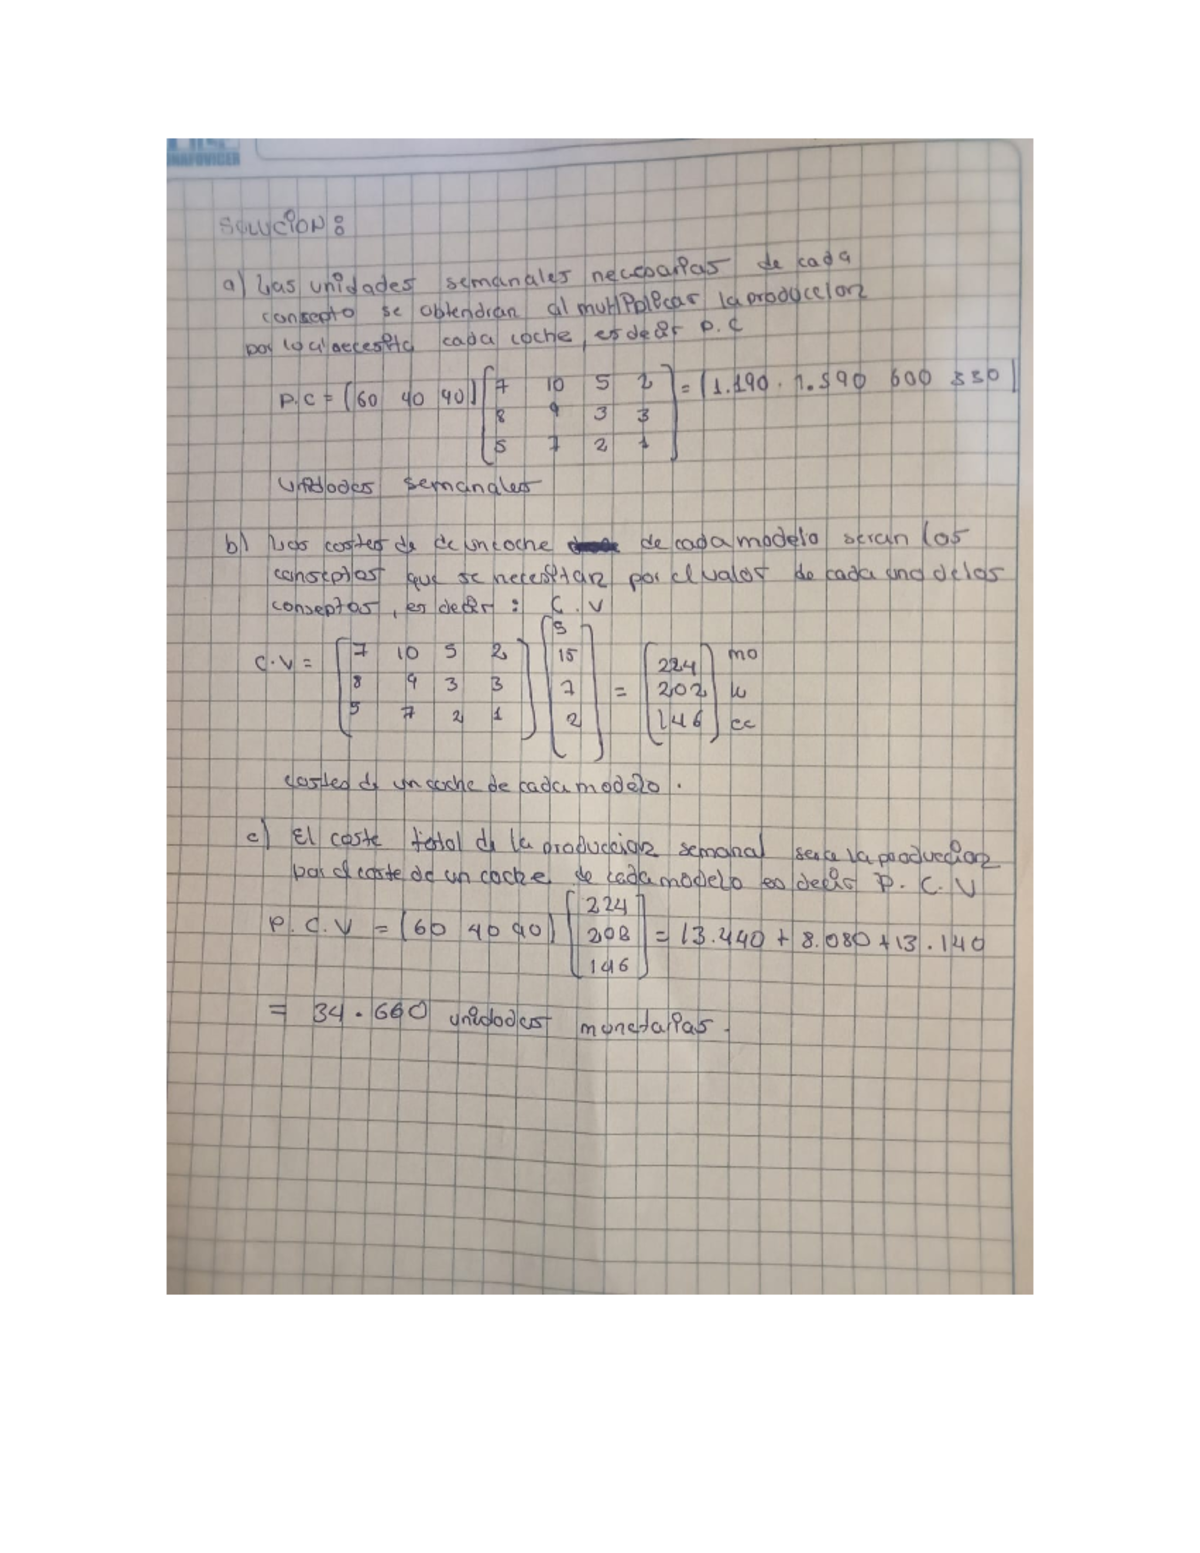 INAFOVICER
SOLUCION:
a) Las unidades semanales necesarias de cada
consepto se obtendran al multiplicar la produccion
por lo q' necesita cada coche, es decir P.C
P.C = (60 40 40) [7 10 5 2] = (1.190 1.590 600 330)
8 9 3 3
5 7 2 1
unidades semanales
b) Los costes de de un coche de cada modelo seran los
conseptos que se necesitan por el valor de cada uno de los
conseptos, es decir: C.V
C.V = [7 10 5 2] [5 15 7 2] = [224 202 146] mo
8 9 3 3
5 7 2 1
costes d un coche de cada modelo.
c) El coste total d la produccion semanal sera la produccion
por el coste de un coche de cada modelo es decir P.C.V
P.C.V = (60 40 90) [224 208 146] = 13.440 + 8.080 + 13.140
= 34.660 unidades monetarias.